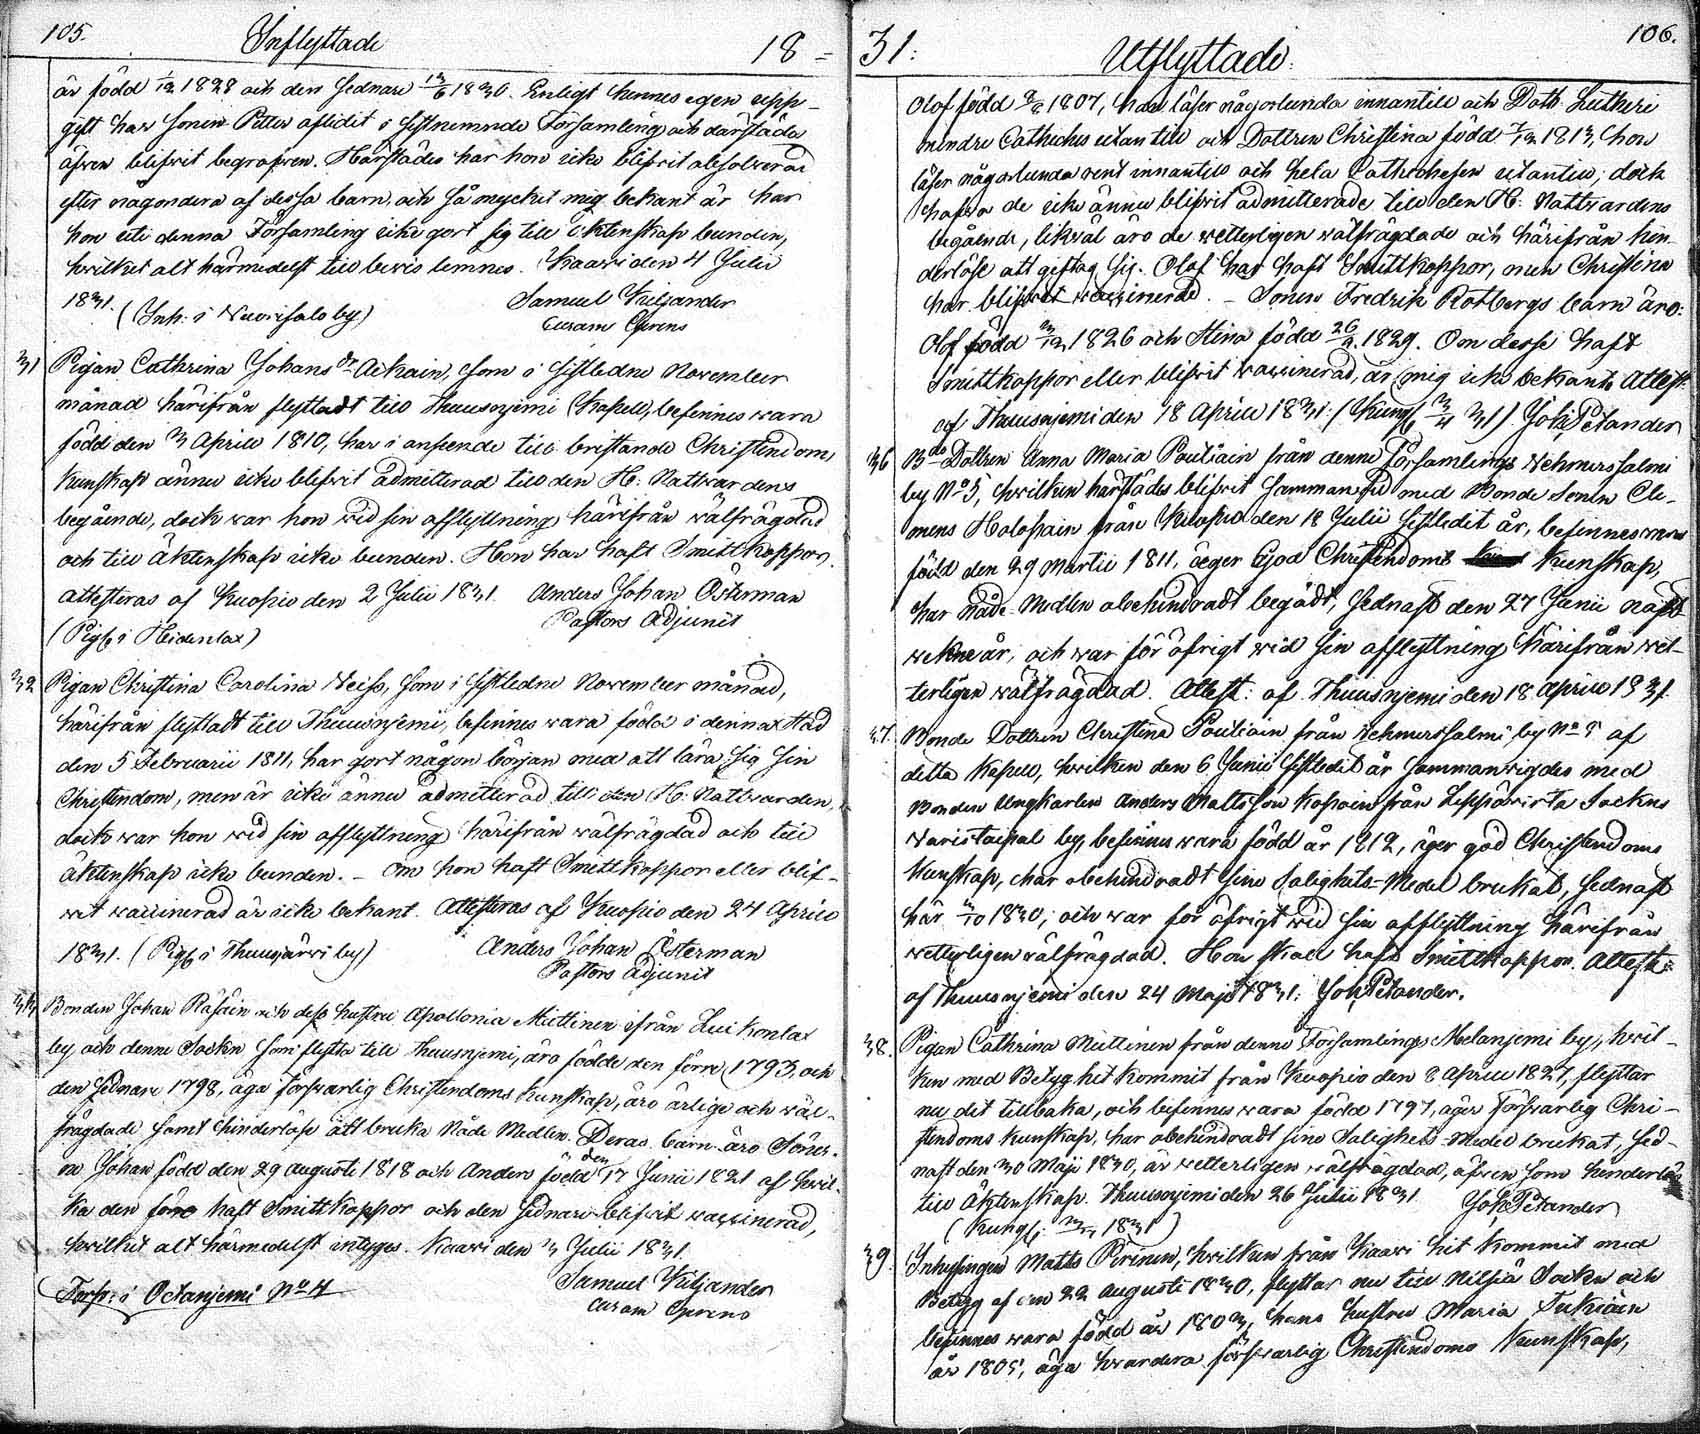 105. Inflyttade 18 =
är född 1/12 1828 och den sednare 13/6 1830. Enligt hennes egen upp-
gift har sonen Petter aflidit i sistnemnde Församling och därstädes
äfven blifvit begrafven. Härstädes har hon icke blifvit absolverad
efter någondera af dessa barn, och så mycket mig bekant är har
hon uti denna Församling icke gort sig till Ektenskap bunden,
hvilket alt härmedelst till bevis lemnes. Kaavi den 4 Julii
1831. (Inh: i Wuorisalo by) Samuel Kiljander
curam gerens
31 Pigan Cathrina Johans dr Achain, som i sistledne November
månad härifrån flyttadt till Thuusnjemi Kapell, befinnes vara
född den 3 Aprill 1810, har i anseende till bristande Christendoms
kunskap ännu icke blifvit admitterad till den H: Nattvardens
begående, dock var hon vid sin afflyttning härifrån välfrägdad
och till Äktenskap icke bunden. Hon har haft Smittkoppor.
attesteras af Kuopio den 2 Julii 1831. Anders Johan Österman
(Pig: i Heidenlax) Pastors Adjunct
32 Pigan Christina Carolina Neiss, som i sistledne November månad,
härifrån flyttadt till Thuusnjemi, befinnes vara född i denna Stad
den 5 Februarii 1811, har gort någon början med att lära sig sin
Christendom, men är icke ännu admitterad till den H: Nattvarden,
dock var hon vid sin afflyttning härifrån välfrägdad och till
äktenskap icke bunden. – Om hon haft Smittkoppor eller blif-
vit vaccinerad är icke bekant. Attesteras af Kuopio den 24 Aprill
1831. (Pig: i Thuusjärvi by) Anders Johan Österman
Pastors Adjunct
33 Bonden Johan Räsäin och dess hustru Apollonia Miettinen ifrån Luikonlax
by och denne Sockn som flytta till Thuusnjemi, äro födde den förre 1793, och
den sednare 1798, äga försvarlig Christendoms kunskap, äro ärlige och väl-
frägdade samt hinderlöse att bruka Nåde Medlen. Deras barn äro Söner-
na Johan född den 29 Augusti 1818 och Anders född den 17 Junii 1821 af hvil-
ka den förre haft Smittkoppor och den sednare blifvit vaccinerad,
hvilket alt härmedelst intyges. Kaavi den 3 Julii 1831.
Samuel Kiljander
Torp: i Octanjemi No 4 curam gerens
31: Utflyttade. 106.
Olof född 1807, han läser någorlunda innantill och Doct: Lutheri
mindre Catheches utantill och Dottren Christina född 1813, hon
läser någorlunda rent innantill och hela Cathechesen utantill; dock
hafva de icke ännu blifvit admitterade till den H: Nattvardens
begående, likväl äro de vetterligen välfrägdade och härifrån hin-
derlöse att giftag sig. Olof har haft Smittkoppor, men Christina
har blifvit vaccinerad. – Sonens Fredrik Rotbergs barn äro:
Olof född 1826 och Stina född 26/9 1829. Om desse haft
Smittkoppor eller blifvit vaccinerad, är mig icke bekant. Attest:
af Thuusnjemi den 18 Aprill 1831. 3/4 31) Joh: Petander
36 Bde Dottren Anna Maria Poutiain från denne Församlings Kehmerssalmi
by No 5, hvilken härstädes blifvit sammanvigd med Bonde Sonen Cle-
mens Holopain från Kuopio den 18 Julii sistledit år, befinnes vara
född den 29 Martii 1811, äger God Christendoms Kunskap,
har Nåde-Medlen obehindradt begådt, sednast den 27 Junii näst-
vekne år, och var för öfrigt vid sin afflyttning härifrån vet-
terligen välfrägdad. Attest: af Thuusnjemi den 18 Aprill 1831.
37. Bonde Dottren Christina Poutiain från Kehmerssalmi by No 5 af
detta Kapell, hvilken den 6 Junii sistledit år sammanvigdes med
Bonden Ungkarlen Anders Matts Son Kopoin från Leppävirta Sockns
Varistaipal by, befinnes vara född år 1812, äger god Christendoms
Kunskap, har obehindradt sine Salighets-Medel brukat, sednast
här 3/10 1830, och var för öfrigt vid sin afflyttning härifrån
vetterligen välfrägdad. Hon skall haft Smittkoppor. Attest:
af Thuusnjemi den 24 Maji 1831. Joh: Petander.
38. Pigan Cathrina Miettinen från denne Församlings Melanjemi by, hvil-
ken med Betyg hit kommit från Kuopio den 8 Aprill 1827, flyttar
nu dit tillbaka, och befinnes vara född 1797, äger försvarlig Chri-
stendoms kunskap, har obehindradt sine Salighets-Medel brukat, sed-
nast den 30 Maji 1830, är vetterligen välfrägdad, äfven som hinderlös
till Äktenskap. Thuusnjemi den 26 Julii 1831. Joh: Petander
39. Inhysingen Matts Pirinen, hvilken från Kaavi hit kommit med
Betyg af den 22 Augusti 1830, flyttar nu till Nilsiä Sockn och
befinnes vara född år 1803, hans hustru Maria Tukiain
år 1805, äga hvardera försvarlig Christendoms Kunskap,